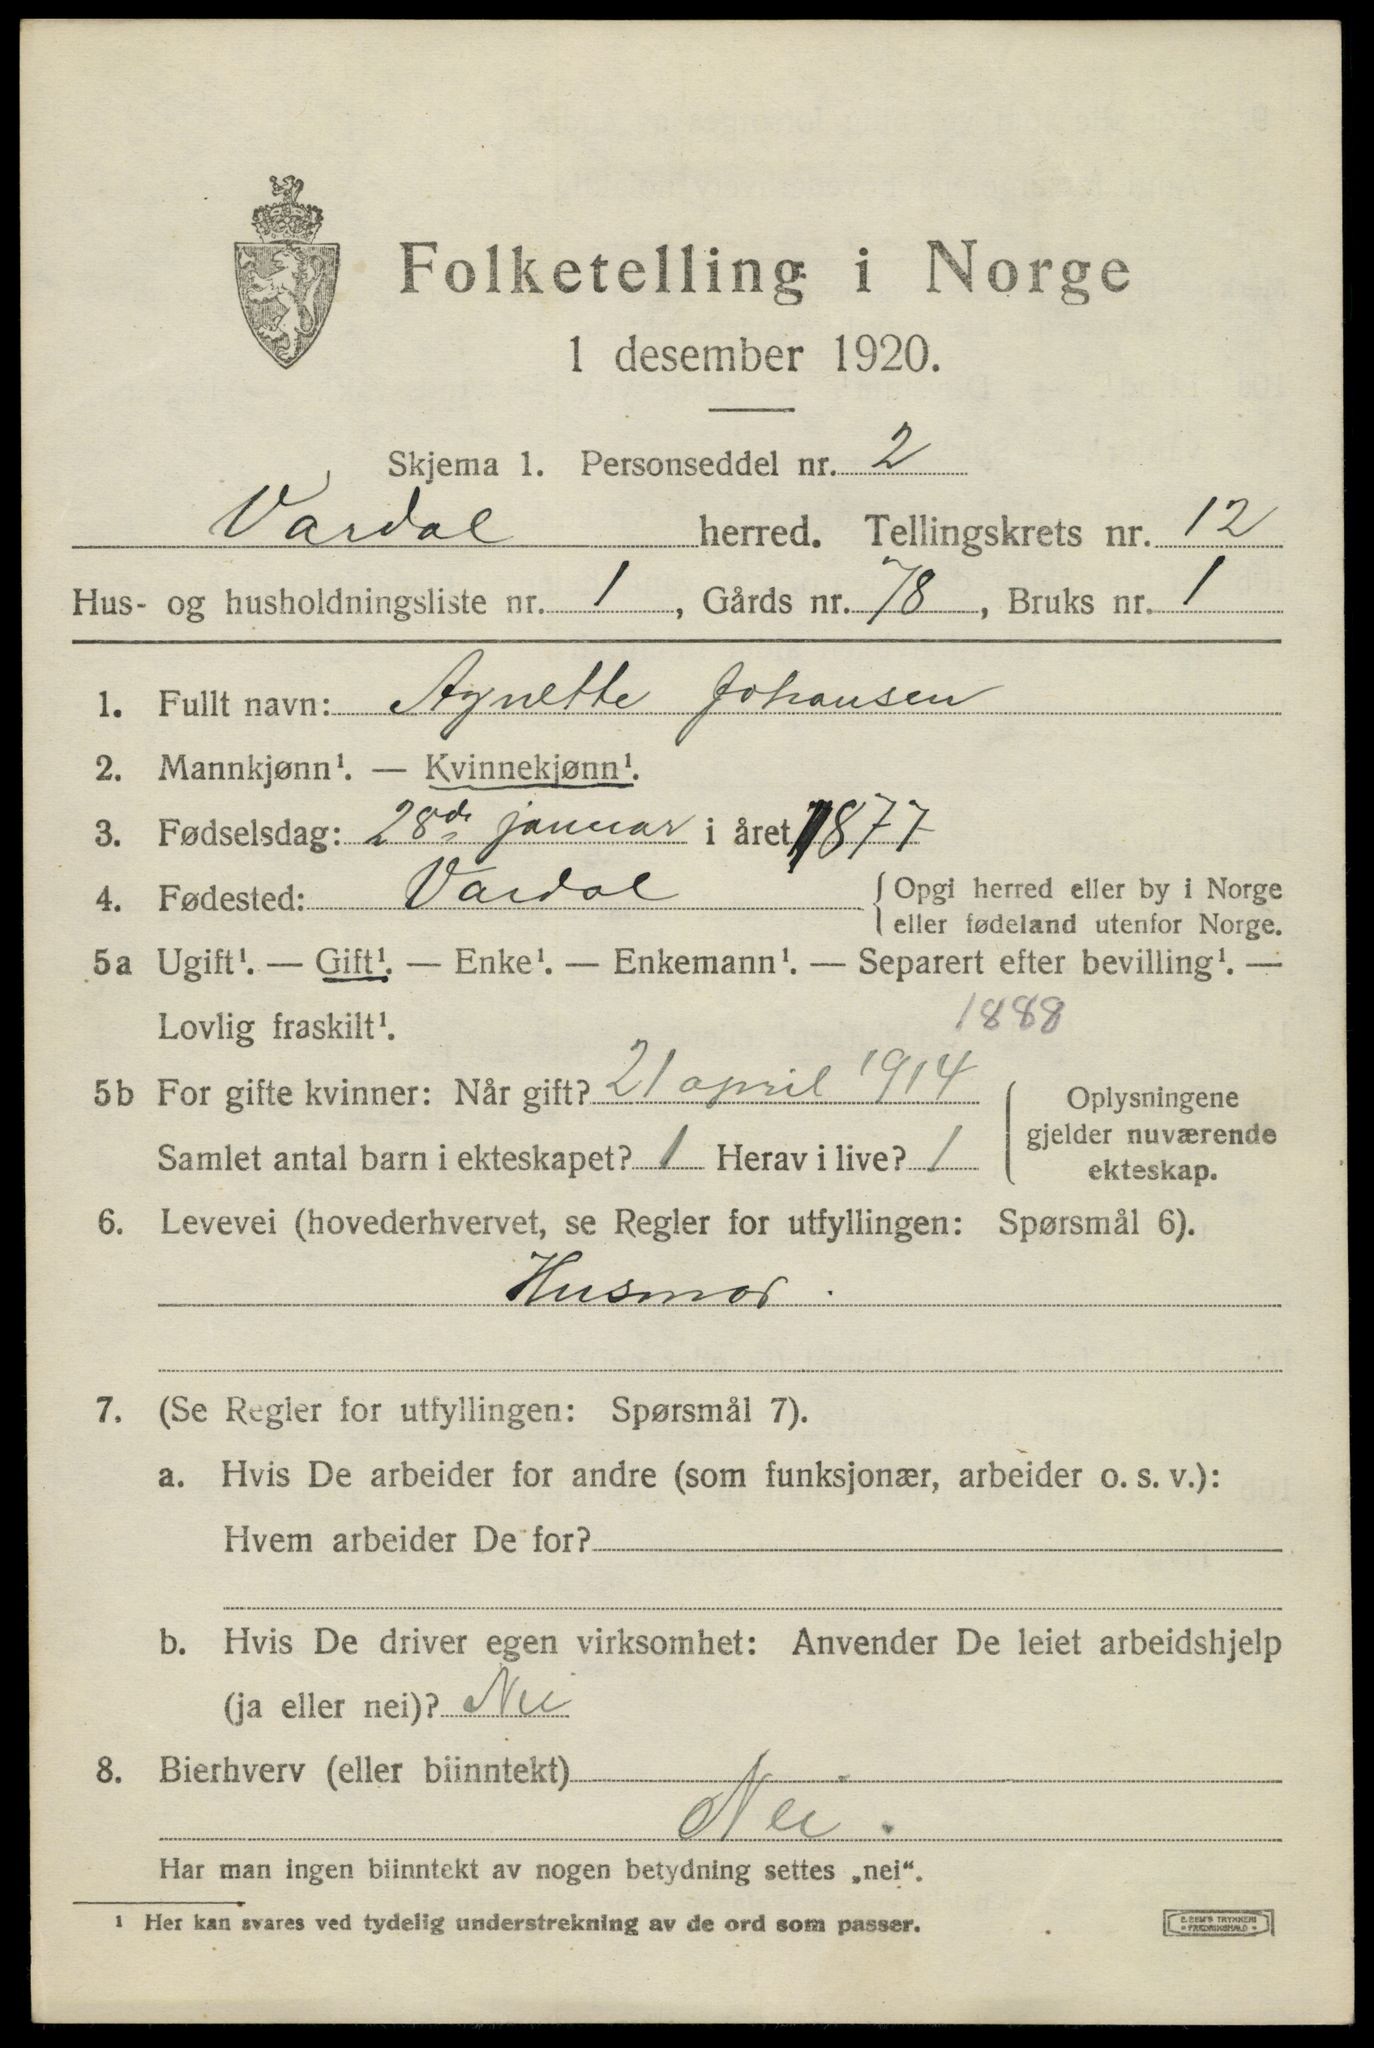 Folketelling i Norge
1 desember 1920.
Skjema 1. Personseddel nr. 2
Vardal herred. Tellingskrets nr. 12
Hus- og husholdningsliste nr. 1, Gårds nr. 78, Bruks nr. 1
1. Fullt navn: Agnette Johansen
2. Mannkjønn¹. — Kvinnekjønn¹.
3. Fødselsdag: 28de januar i året 1877
4. Fødested: Vardal { Opgi herred eller by i Norge
eller fødeland utenfor Norge.
5a Ugift¹. — Gift¹. — Enke¹. — Enkemann¹. — Separert efter bevilling¹. —
Lovlig fraskilt¹. 1888
5b For gifte kvinner: Når gift? 21 april 1914 ( Oplysningene
gjelder nuværende
Samlet antal barn i ekteskapet? 1 Herav i live? 1
ekteskap.
6. Levevei (hovederhvervet, se Regler for utfyllingen: Spørsmål 6).
Husmor.
7. (Se Regler for utfyllingen: Spørsmål 7).
a. Hvis De arbeider for andre (som funksjonær, arbeider o. s. v.):
Hvem arbeider De for?
b. Hvis De driver egen virksomhet: Anvender De leiet arbeidshjelp
(ja eller nei)? Nei
8. Bierhverv (eller biinntekt)
Nei.
Har man ingen biinntekt av nogen betydning settes „nei“.
¹ Her kan svares ved tydelig understrekning av de ord som passer.
E. SEM'S TRYKKERI
FREDRIKSHALD